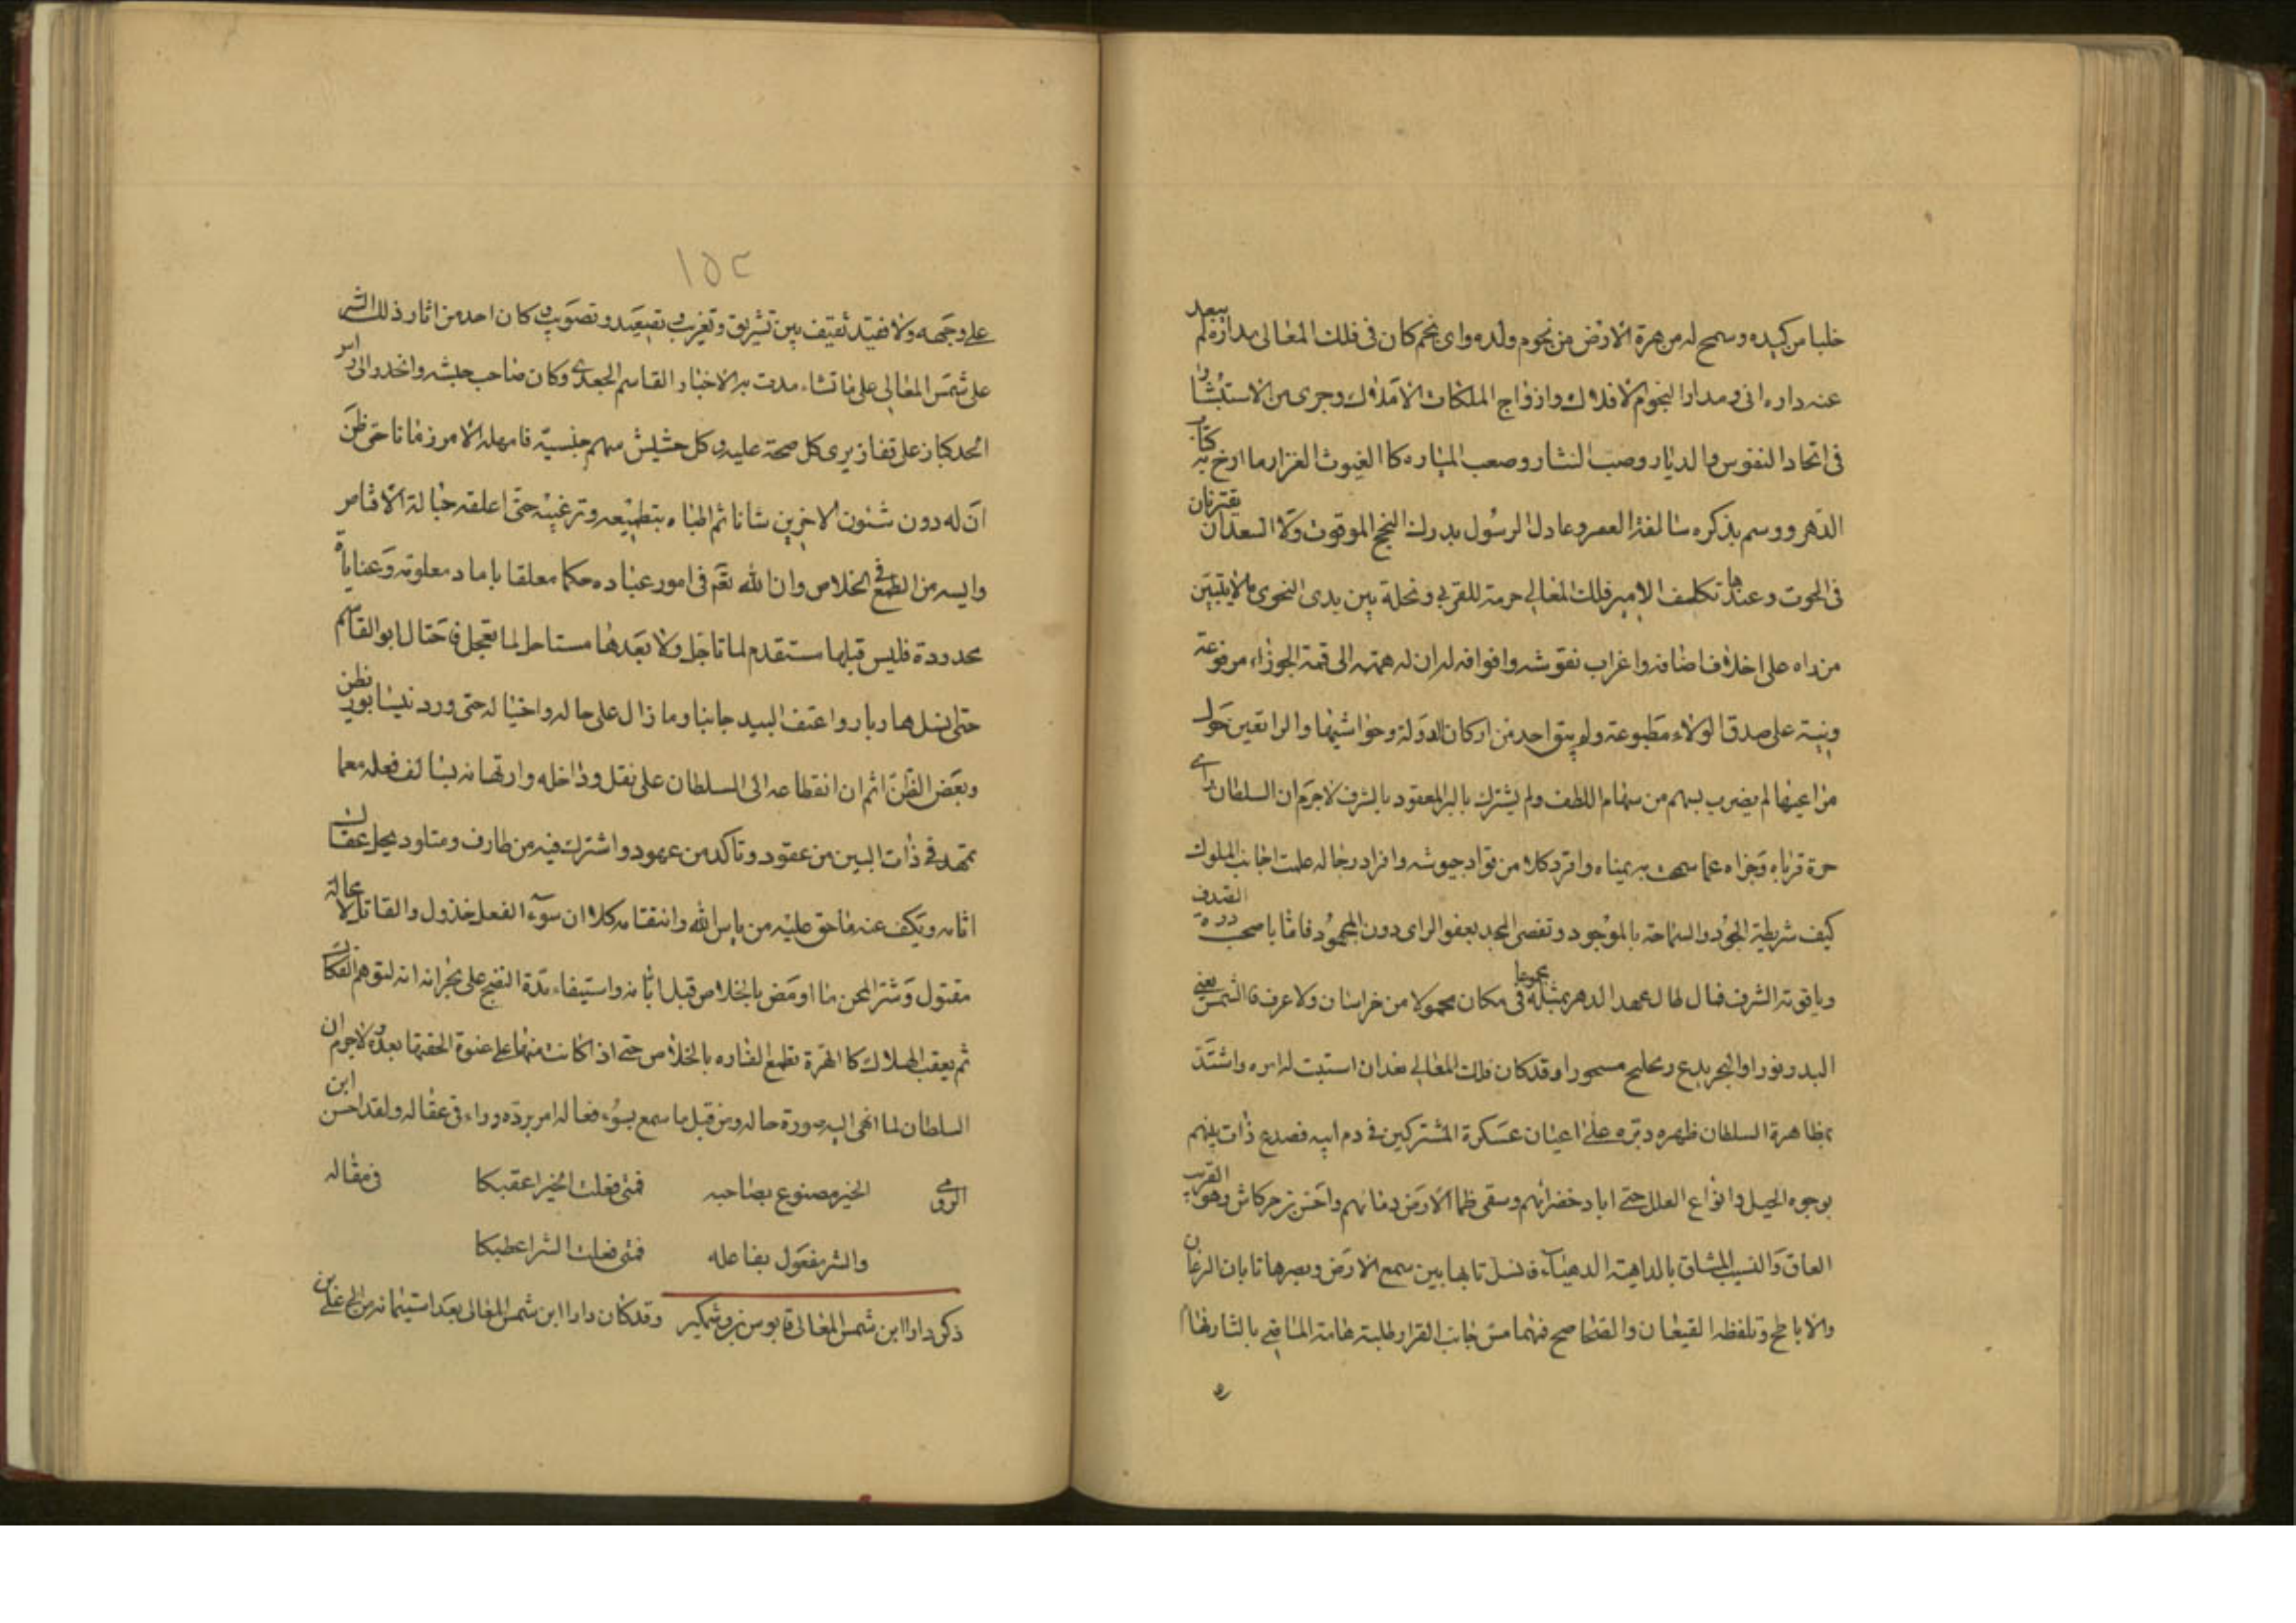 خلبا من كيده وسمح له من هرة الارض من نجوم ولده واى نجم كان فى فلك المعالى مداره لم يبعد
عنه داره انى ومدار النجوم الافلاك وازواج الملكات الاملاك وجرى من الاستبشار
فى اتحاد النفوس والديار وصب النثار وصعب المبار كا الغيوث الغزار ما ارخ به كتاب
الدهر ووسم بذكره سالفة العصر وعاد الرسول بدرك النجح الموقوت ولا السعدان يقترنان
فى الحوت وعندها تكلف الامير فلك المعالى حرمة للقربى ونحلة بين يدى النجوى ما لا يتبين
من داه على اخلاف اضافه واغراب نقوشه وافوافه لان له همة الى قمة الجوزاء مرفوعة
ونية على صدق الولاء مطبوعة ولم يبق احد من اركان الدولة وحواشيها والراتعين حول
مراعيها لم يضرب بسهم من سهام اللطف ولم يشترك بالبر المعقود بالشرف لاجرم ان السلطان راى
حق قرباه وجزاه عما سمحت به يمناه وافرد كلا من قواد جيوشه وافراد رجاله علمت اجانب الملوك
كيف شريطة الجود والسماحة بالموجود وتقصى المجد بعفو الراى دون المجهود فاما يا صحب الصدف درة
وياقوتة الشرف فمال لها ل عهد الدهر بمثله مجموعا فى مكان محمولا من خراسان ولا عرف فا الشمس يعنى
البدر نورا والبحر يدع وتخليج مسجورا وقد كان فلك المعالى بعد ان استتبت له امره واشتد
بمظاهرة السلطان ظهره دبره على اعيان عسكره المشتركين فى دم ابيه فصدع ذات بينهم
بوجوه الحيل وانواع العلل حتى اباد خضرائهم وسقى ظما الارض دمائهم واحس بن خركاش وهو القريب
العاق والنسيب المشاق بالداهية الدهياء فانسل تابها بين سمع الارض وبصرها تا بان الرعان
والاباطح وتلفظه القيعان والصحاصح فهما مس جانب القرار وطلبته هامة المنافى بالثار هنا
١٥٢
على وجهه ولا ضيتد ثقيف بين تشريق وتغريب وتصعيد وتصويب وكان احد من اثار ذلك الشر
على شمس المعالى على ما تشاءمدت به الاخبار القاسم الجعدى وكان صاحب جيشه وانحدر الى امر
الحد كباز على قفاز يرى كل صحة عليه وكل حشيش سهم جنسية فامهله الامر زمانا حتى ظن
ان له دون شئون الاخرين شانا ثم الهاه بتطبيعه وترغيبه حتى اعلقه حبالة الاقامر
وايسه من الطمع فى الخلاص وان الله تعم فى امور عباده حكما معلقا باماد معلومة وغايات
محدودة فليس قبلها مستقدم لما تاجل ولا بعدها مستاخر لما تعجل فاحتال ابو القاسم
حتى انسل هاربا واعتف البيد جانبا وما زال على حاله واختياله حتى ورد نيسابور يظن
وبعض الظن اثم ان انقطاعه الى السلطان على نقل وداخله وارتهانه بسالف فعله معما
تمهد فى ذات البين من عقود وتاكد من عهود واشترك فيه من طارف ومتلود يحل عقال
اثامه ويكف عنه ما حق عليه من باس الله وانتقامه كلا ان سوء الفعل خذول والقاتل لا محالة
مقتول وشر المحن ما اومض بالخلاص قبل ابانه واستيفاء مدة النضج على بحرانه انه لتوهم الفكاك
ثم يعقب الهلاك كا الهرة تطمع الفاره بالخلاص حتى اذا كانت منها على عنوة الحقتها بعدوة ولاجرم ان
السلطان لما انهى اليه صورة حاله ومن قبل ما سمع بسوء فعاله امر برده وراءه فى عقاله ولقد احسن ابن
الرومى الخير مصنوع بصاحبه فمتى فعلت الخير اعقبكا فى مقاله
والشر مفعول بفاعله فمتى فعلت الشر اعطبكا
ذكر دارا ابن شمس المعالى قابوس بن وشمكير وقد كان دارا ابن شمس المعالى بعد استيمانه من ابى على بن